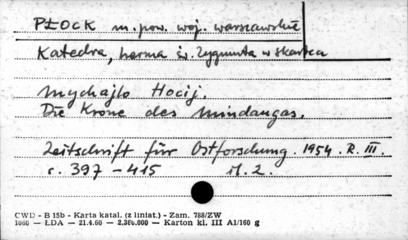 PŁOCK m. pow. woj. warszawskie
Katedra, herma św. Zygmunta w skarbcu
Mychajlo Hocij.
Die Krone des Mindaugas.
Zeitschrift für Ostforschung. 1954. R. III.
s. 397-415 M. 2.
CWD - B 15b - Karta katal. (z liniat.) - Zam. 788/ZW
1060 — ŁDA — 21.4.60 - 2.300.000 — Karton kl. III A1/160 g